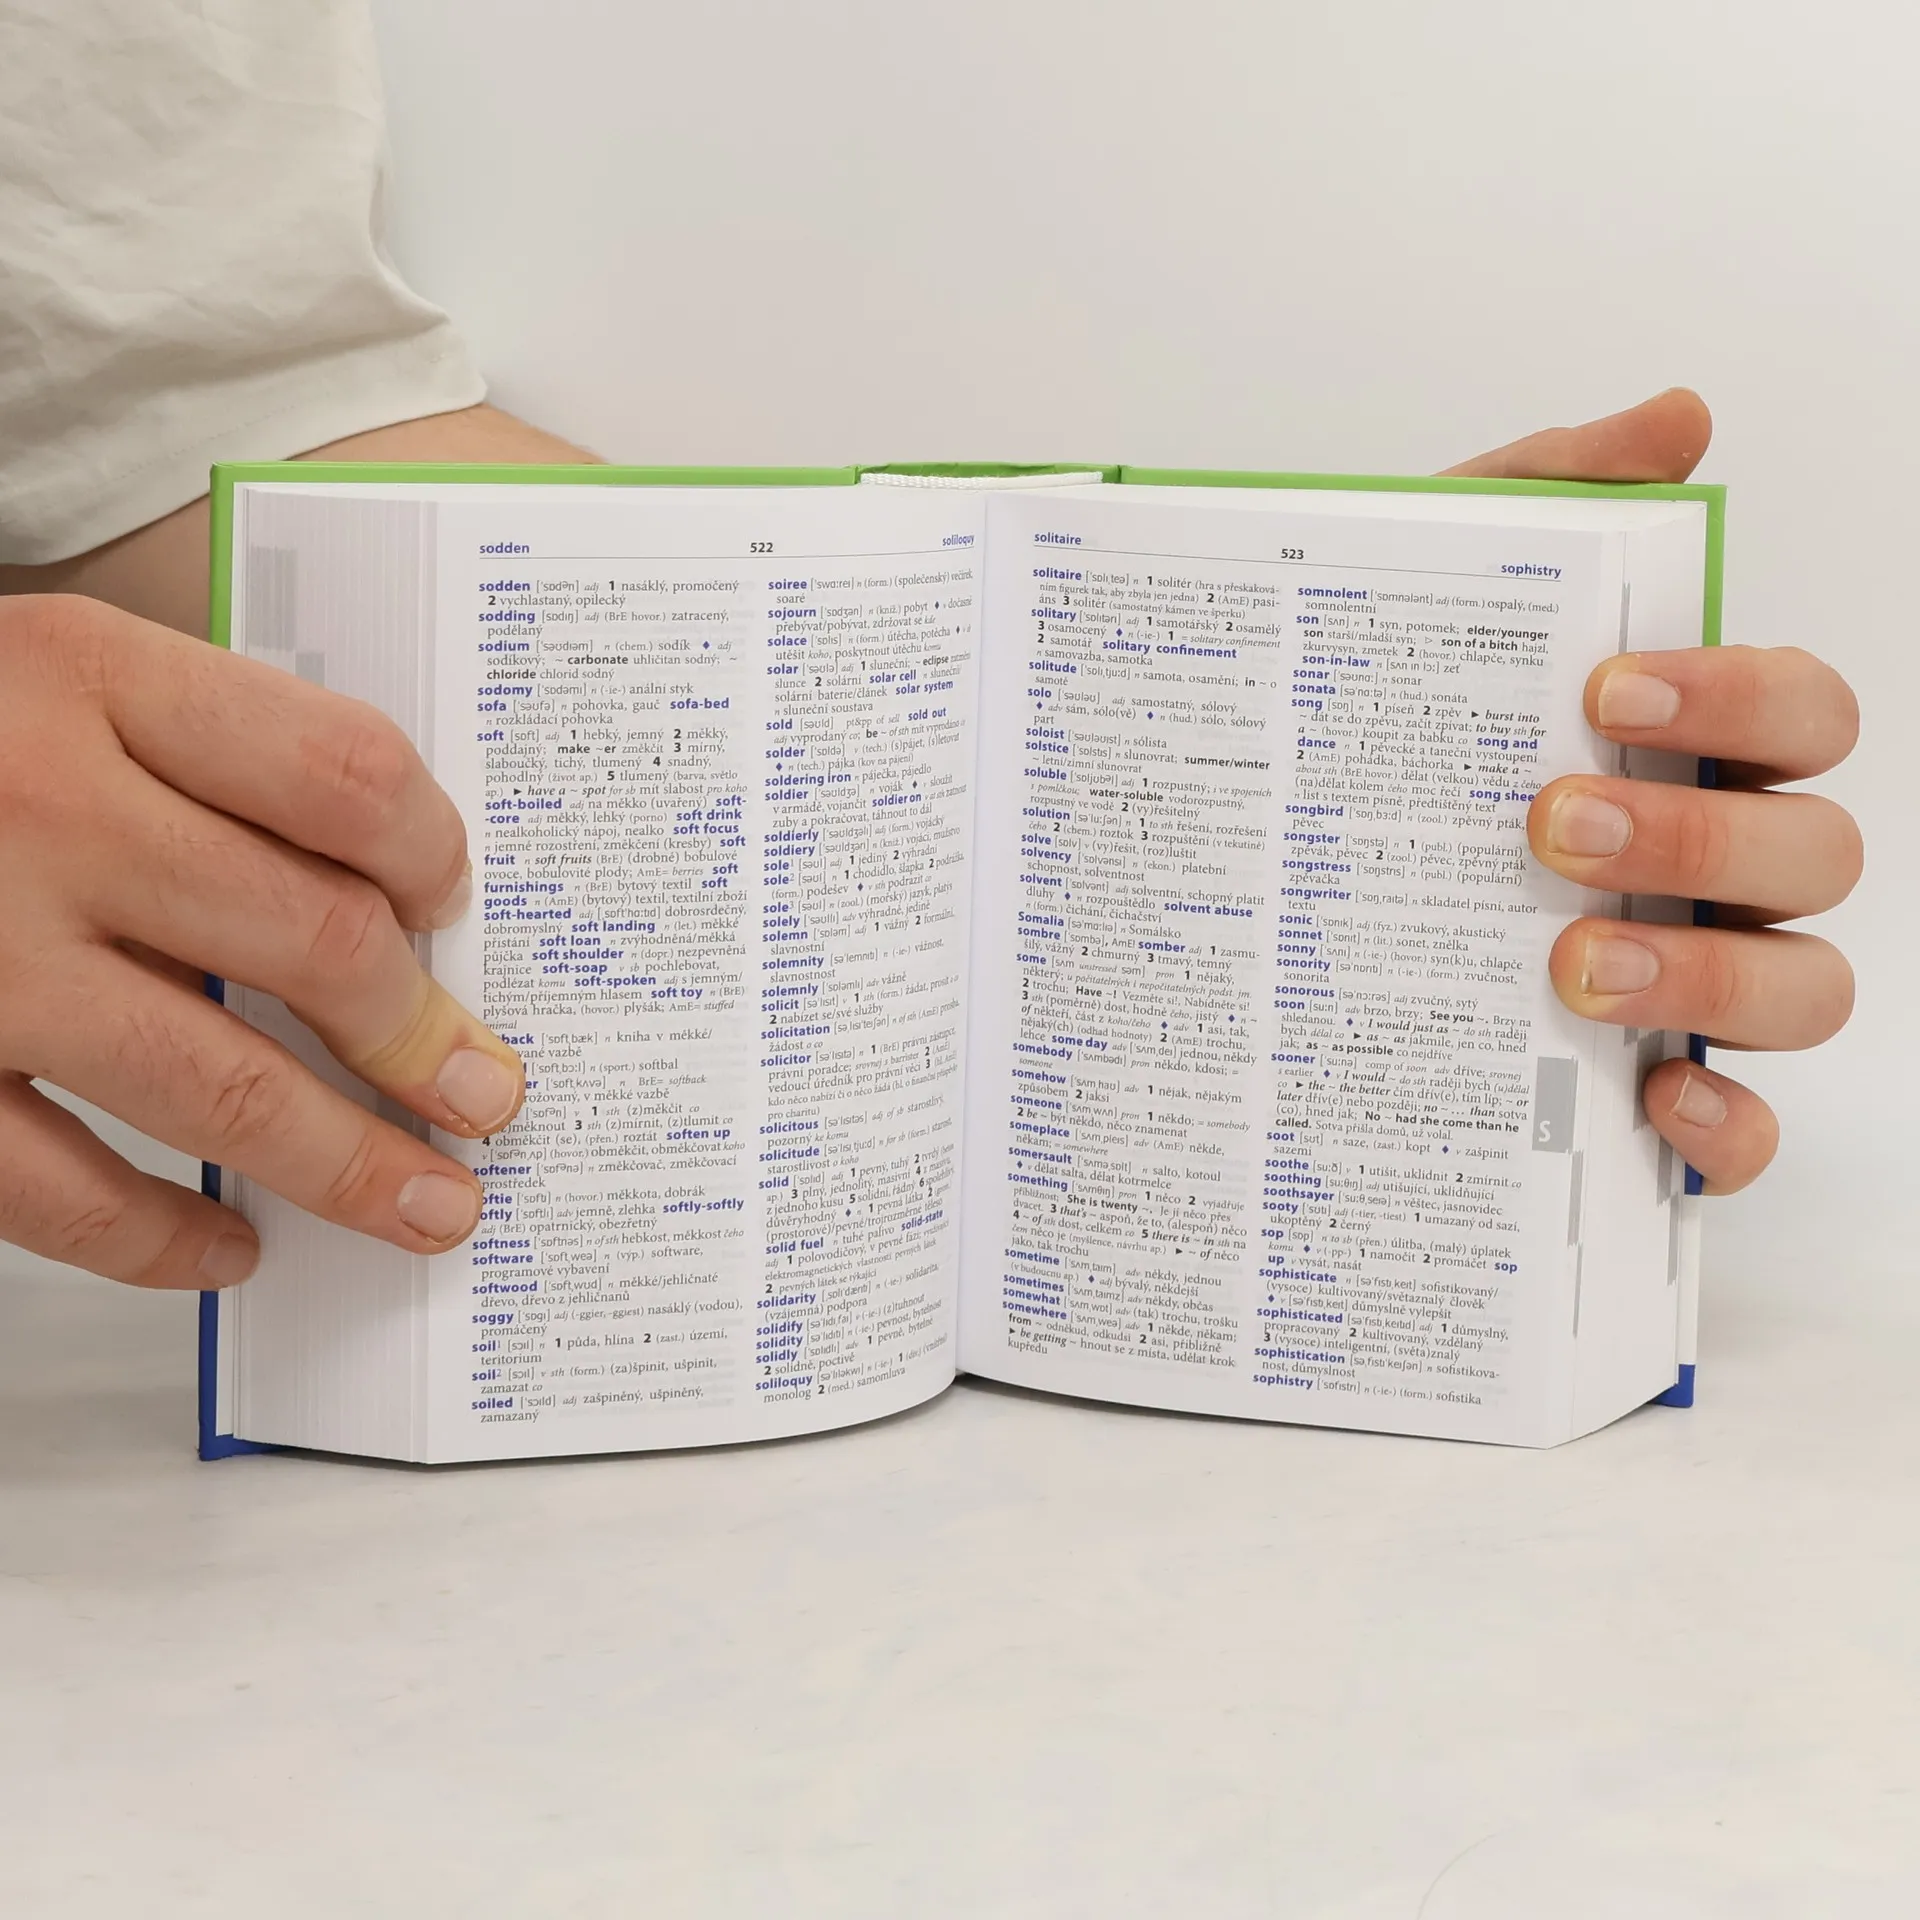 sodden 522 soliloquy
sodden [ˈsɒdᵊn] adj 1 nasáklý, promočený
2 vychlastaný, opilecký
sodding [ˈsɒdɪŋ] adj (BrE hovor.) zatracený,
podělaný
sodium [ˈsəʊdɪəm] n (chem.) sodík ♦ adj
sodíkový; ~ carbonate uhličitan sodný; ~
chloride chlorid sodný
sodomy [ˈsɒdəmɪ] n (-ie-) anální styk
sofa [ˈsəʊfə] n pohovka, gauč sofa-bed
n rozkládací pohovka
soft [sɒft] adj 1 hebký, jemný 2 měkký,
poddajný; make ~er změkčit 3 mírný,
slaboučký, tichý, tlumený 4 snadný,
pohodlný (život ap.) 5 tlumený (barva, světlo
ap.) ► have a ~ spot for sb mít slabost pro koho
soft-boiled adj na měkko (uvařený) soft-
-core adj měkký, lehký (porno) soft drink
n nealkoholický nápoj, nealko soft focus
n jemné rozostření, změkčení (kresby) soft
fruit n soft fruits (BrE) (drobné) bobulové
ovoce, bobulovité plody; AmE= berries soft
furnishings n (BrE) bytový textil soft
goods n (AmE) (bytový) textil, textilní zboží
soft-hearted adj [ˌsɒftˈhɑːtɪd] dobrosrdečný,
dobromyslný soft landing n (let.) měkké
přistání soft loan n zvýhodněná/měkká
půjčka soft shoulder n (dopr.) nezpevněná
krajnice soft-soap v sb pochlebovat,
podlézat komu soft-spoken adj s jemným/
tichým/příjemným hlasem soft toy n (BrE)
plyšová hračka, (hovor.) plyšák; AmE= stuffed
animal
back [ˈsɒftˌbæk] n kniha v měkké/
vané vazbě
[ˈsɒftˌbɔːl] n (sport.) softbal
er [ˈsɒftˌkʌvə] n BrE= softback
rožovaný, v měkké vazbě
[ˈsɒfᵊn] v 1 sth (z)měkčit co
(z)měknout 3 sth (z)mírnit, (z)tlumit co
4 obměkčit (se), (přen.) roztát soften up
v [ˈsɒfᵊnˌʌp] (hovor.) obměkčit, obměkčovat koho
softener [ˈsɒfᵊnə] n změkčovač, změkčovací
prostředek
oftie [ˈsɒftɪ] n (hovor.) měkkota, dobrák
oftly [ˈsɒftlɪ] adv jemně, zlehka softly-softly
adj (BrE) opatrnický, obezřetný
softness [ˈsɒftnəs] n of sth hebkost, měkkost čeho
software [ˈsɒftˌweə] n (výp.) software,
programové vybavení
softwood [ˈsɒftˌwʊd] n měkké/jehličnaté
dřevo, dřevo z jehličnanů
soggy [ˈsɒgɪ] adj (-ggier, -ggiest) nasáklý (vodou),
promáčený
soil¹ [sɔɪl] n 1 půda, hlína 2 (zast.) území,
teritorium
soil² [sɔɪl] v sth (form.) (za)špinit, ušpinit,
zamazat co
soiled [ˈsɔɪld] adj zašpiněný, ušpiněný,
zamazaný
soiree [ˈswɑːreɪ] n (form.) (společenský) večírek,
soaré
sojourn [ˈsɒdʒən] n (kniž.) pobyt ♦ v dočasně
přebývat/pobývat, zdržovat se kde
solace [ˈsɒlɪs] n (form.) útěcha, potěcha ♦ v
utěšit koho, poskytnout útěchu komu
solar [ˈsəʊlə] adj 1 sluneční; ~ eclipse zatmění
slunce 2 solární solar cell n sluneční/
solární baterie/článek solar system
n sluneční soustava
sold [səʊld] pt&pp of sell sold out
adj vyprodaný co; be ~ of sth mít vyprodáno
solder [ˈsɒldə] v (tech.) (s)pájet, (s)letovat
♦ n (tech.) pájka (kov na pájení)
soldering iron n páječka, pájedlo
soldier [ˈsəʊldʒə] n voják ♦ v sloužit
v armádě, vojančit soldier on v
zuby a pokračovat, táhnout to dál
soldierly [ˈsəʊldʒəlɪ] adj (form.) vojácký
soldiery [ˈsəʊldʒərɪ] n (form.) vojáci, mužstvo
sole¹ [səʊl] adj 1 jediný 2 výhradní
sole² [səʊl] n 1 chodidlo, šlapka 2 podrážka,
(form.) podešev ♦ v sth podrazit co
sole³ [səʊl] n (zool.) (mořský) jazyk, platýs
solely [ˈsəʊllɪ] adv výhradně, jedině
solemn [ˈsɒləm] adj 1 vážný 2 formální,
slavnostní
solemnity [səˈlemnɪtɪ] n (-ie-) vážnost,
slavnostnost
solemnly [ˈsɒləmlɪ] adv vážně
solicit [səˈlɪsɪt] v 1 sth (form.) žádat, prosit o co
2 nabízet se/své služby
solicitation [səˌlɪsɪˈteɪʃən] n of sth (AmE) prosba,
žádost o co
solicitor [səˈlɪsɪtə] n 1 (BrE) právní zástupce,
právní poradce; srovnej s barrister 2 (AmE)
vedoucí úředník pro právní věci 3 (hl. AmE)
kdo něco nabízí či o něco žádá (hl. o finanční příspěvky
pro charitu)
solicitous [səˈlɪsɪtəs] adj of sb starostlivý,
pozorný ke komu
solicitude [səˈlɪsɪˌtjuːd] n for sb (form.) starost,
starostlivost o koho
solid [ˈsɒlɪd] adj 1 pevný, tuhý 2 tvrdý (terén
ap.) 3 plný, jednolitý, masivní 4 z masivu,
z jednoho kusu 5 solidní, řádný 6 spolehlivý,
důvěryhodný ♦ n 1 pevná látka 2 (geom.)
(prostorové)/pevné/trojrozměrné těleso
solid fuel n tuhé palivo solid-state
adj 1 polovodičový, v pevné fázi; využívající
elektromagnetických vlastností pevných látek
2 pevných látek se týkající
solidarity [ˌsɒlɪˈdærɪtɪ] n (-ie-) solidarita,
(vzájemná) podpora
solidify [səˈlɪdɪˌfaɪ] v (-ie-) (z)tuhnout
solidity [səˈlɪdɪtɪ] n (-ie-) pevnost, bytelnost
solidly [ˈsɒlɪdlɪ] adv 1 pevně, bytelně
2 solidně, poctivě
soliloquy [səˈlɪləkwɪ] n (-ie-) 1 (div.) (vnitřní)
monolog 2 (med.) samomluva
solitaire 523 sophistry
solitaire [ˈsɒlɪˌteə] n 1 solitér (hra s přeskaková-
ním figurek tak, aby zbyla jen jedna) 2 (AmE) pasi-
áns 3 solitér (samostatný kámen ve šperku)
solitary [ˈsɒlɪtərɪ] adj 1 samotářský 2 osamělý
3 osamocený ♦ n (-ie-) 1 = solitary confinement
2 samotář solitary confinement
n samovazba, samotka
solitude [ˈsɒlɪˌtjuːd] n samota, osamění; in ~ o
samotě
solo [ˈsəʊləʊ] adj samostatný, sólový
♦ adv sám, sólo(vě) ♦ n (hud.) sólo, sólový
part
soloist [ˈsəʊləʊɪst] n sólista
solstice [ˈsɒlstɪs] n slunovrat; summer/winter
~ letní/zimní slunovrat
soluble [ˈsɒljʊbᵊl] adj 1 rozpustný; i ve spojeních
s pomlčkou; water-soluble vodorozpustný,
rozpustný ve vodě 2 (vy)řešitelný
solution [səˈluːʃən] n 1 to sth řešení, rozřešení
čeho 2 (chem.) roztok 3 rozpuštění (v tekutině)
solve [sɒlv] v (vy)řešit, (roz)luštit
solvency [ˈsɒlvənsɪ] n (ekon.) platební
schopnost, solventnost
solvent [ˈsɒlvənt] adj solventní, schopný platit
dluhy ♦ n rozpouštědlo solvent abuse
n (form.) čichání, čichačství
Somalia [səˈmɑːlɪə] n Somálsko
sombre [ˈsɒmbə], AmE! somber adj 1 zasmu-
šilý, vážný 2 chmurný 3 tmavý, temný
some [sʌm unstressed səm] pron 1 nějaký,
některý; u počitatelných i nepočitatelných podst. jm.
2 trochu; Have ~! Vezměte si!, Nabídněte si!
3 sth (poměrně) dost, hodně čeho, jistý ♦ n ~
of někteří, část z koho/čeho ♦ adv 1 asi, tak,
nějaký(ch) (odhad hodnoty) 2 (AmE) trochu,
lehce some day adv [ˈsʌmˌdeɪ] jednou, někdy
somebody [ˈsʌmbədɪ] pron někdo, kdosi; =
someone
somehow [ˈsʌmˌhaʊ] adv 1 nějak, nějakým
způsobem 2 jaksi
someone [ˈsʌmˌwʌn] pron 1 někdo; = somebody
2 be ~ být někdo, něco znamenat
someplace [ˈsʌmˌpleɪs] adv (AmE) někde,
někam; = somewhere
somersault [ˈsʌməˌsɔːlt] n salto, kotoul
♦ v dělat salta, dělat kotrmelce
something [ˈsʌmθɪŋ] pron 1 něco 2 vyjadřuje
přibližnost; She is twenty ~. Je jí něco přes
dvacet. 3 that's ~ aspoň, že to, (alespoň) něco
4 ~ of sth dost, celkem co 5 there is ~ in sth na
čem něco je (myšlence, návrhu ap.) ► ~ of něco
jako, tak trochu
sometime [ˈsʌmˌtaɪm] adv někdy, jednou
(v budoucnu ap.) ♦ adj bývalý, někdejší
sometimes [ˈsʌmˌtaɪmz] adv někdy, občas
somewhat [ˈsʌmˌwɒt] adv (tak) trochu, trošku
somewhere [ˈsʌmˌweə] adv 1 někde, někam;
from ~ odněkud, odkudsi 2 asi, přibližně
► be getting ~ hnout se z místa, udělat krok
kupředu
somnolent [ˈsɒmnələnt] adj (form.) ospalý, (med.)
somnolentní
son [sʌn] n 1 syn, potomek; elder/younger
son starší/mladší syn; ▷ son of a bitch hajzl,
zkurvysyn, zmetek 2 (hovor.) chlapče, synku
son-in-law n [ˈsʌn ɪn lɔː] zeť
sonar [ˈsəʊnɑː] n sonar
sonata [səˈnɑːtə] n (hud.) sonáta
song [sɒŋ] n 1 píseň 2 zpěv ► burst into
~ dát se do zpěvu, začít zpívat; to buy sth for
a ~ (hovor.) koupit za babku co song and
dance n 1 pěvecké a taneční vystoupení
2 (AmE) pohádka, báchorka ► make a ~
about sth (BrE hovor.) dělat (velkou) vědu z čeho,
(na)dělat kolem čeho moc řečí song shee
n list s textem písně, předtištěný text
songbird [ˈsɒŋˌbɜːd] n (zool.) zpěvný pták,
pěvec
songster [ˈsɒŋstə] n 1 (publ.) (populární)
zpěvák, pěvec 2 (zool.) pěvec, zpěvný pták
songstress [ˈsɒŋstrɪs] n (publ.) (populární)
zpěvačka
songwriter [ˈsɒŋˌraɪtə] n skladatel písní, autor
textu
sonic [ˈsɒnɪk] adj (fyz.) zvukový, akustický
sonnet [ˈsɒnɪt] n (lit.) sonet, znělka
sonny [ˈsʌnɪ] n (-ie-) (hovor.) syn(k)u, chlapče
sonority [səˈnɒrɪtɪ] n (-ie-) (form.) zvučnost,
sonorita
sonorous [səˈnɔːrəs] adj zvučný, sytý
soon [suːn] adv brzo, brzy; See you ~. Brzy na
shledanou. ♦ v I would just as ~ do sth raději
bych dělal co ► as ~ as jakmile, jen co, hned
jak; as ~ as possible co nejdříve
sooner [ˈsuːnə] comp of soon adv dříve; srovnej
s earlier ♦ v I would ~ do sth raději bych (u)dělal
co ► the ~ the better čím dřív(e), tím líp; ~ or
later dřív(e) nebo později; no ~ … than sotva
(co), hned jak; No ~ had she come than he
called. Sotva přišla domů, už volal.
soot [sʊt] n saze, (zast.) kopt ♦ v zašpinit
sazemi
soothe [suːð] v 1 utišit, uklidnit 2 zmírnit co
soothing [ˈsuːðɪŋ] adj utišující, uklidňující
soothsayer [ˈsuːθˌseɪə] n věštec, jasnovidec
sooty [ˈsʊtɪ] adj (-tier, -tiest) 1 umazaný od sazí,
ukoptěný 2 černý
sop [sɒp] n to sb (přen.) úlitba, (malý) úplatek
komu ♦ v (-pp-) 1 namočit 2 promáčet sop
up v vysát, nasát
sophisticate n [səˈfɪstɪˌkeɪt] sofistikovaný/
(vysoce) kultivovaný/světaznalý člověk
♦ v [səˈfɪstɪˌkeɪt] důmyslně vylepšit
sophisticated [səˈfɪstɪˌkeɪtɪd] adj 1 důmyslný,
propracovaný 2 kultivovaný, vzdělaný
3 (vysoce) inteligentní, (světa)znalý
sophistication [səˌfɪstɪˈkeɪʃən] n sofistikova-
nost, důmyslnost
sophistry [ˈsɒfɪstrɪ] n (-ie-) (form.) sofistika
S